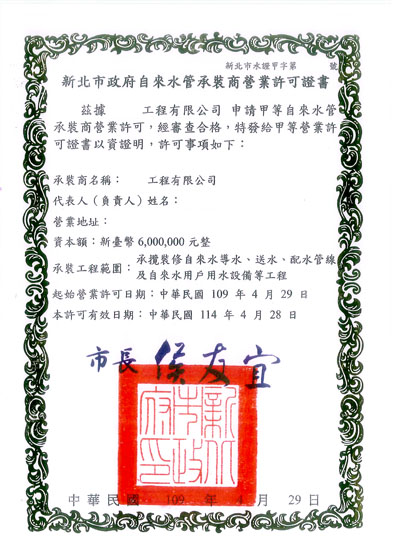 新北市水證甲字第 號
新北市政府自來水管承裝商營業許可證書
茲據 工程有限公司 申請甲等自來水管
承裝商營業許可，經審查合格，特發給甲等營業許
可證書以資證明，許可事項如下：
承裝商名稱： 工程有限公司
代表人（負責人）姓名：
營業地址：
資本額：新臺幣 6,000,000 元整
承裝工程範圍：承攬裝修自來水導水、送水、配水管線
及自來水用戶用水設備等工程
起始營業許可日期：中華民國 109 年 4 月 29 日
本許可有效日期：中華民國 114 年 4 月 28 日
市長 侯友宜
新北市政府印
中華民國 109 年 4 月 29 日